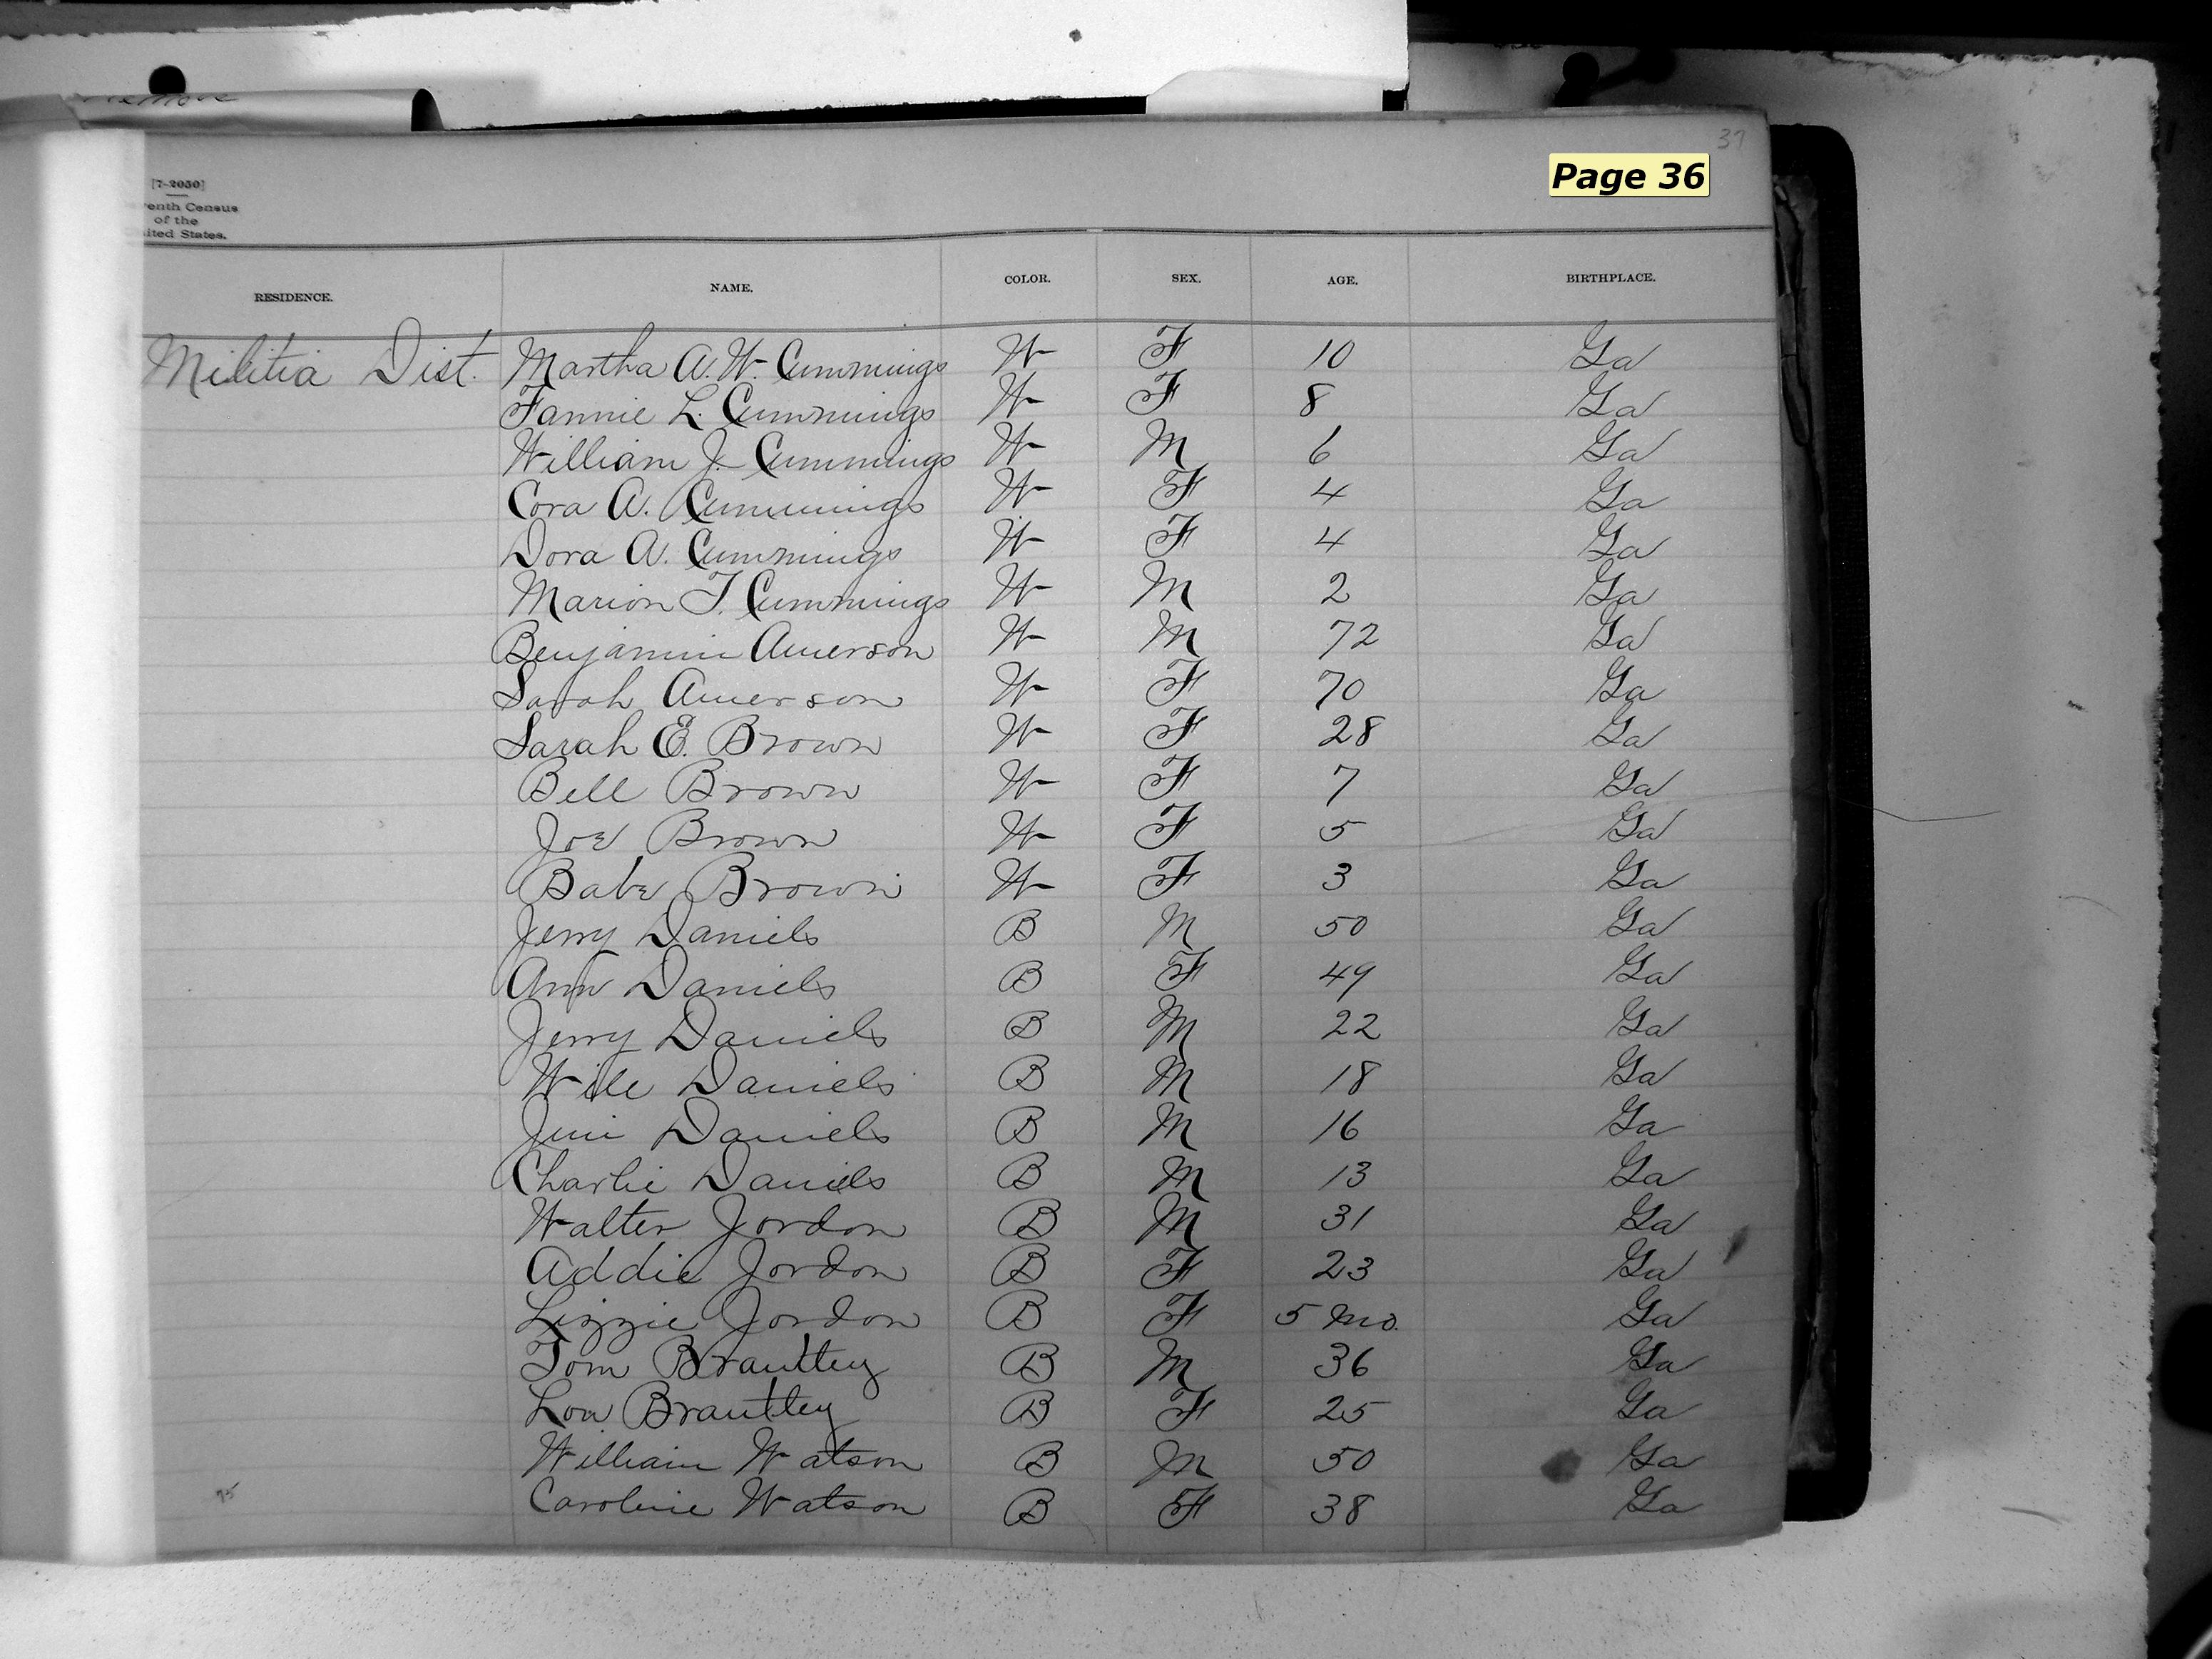 37
Page 36
[7-2050]
enth Census
of the
ited States.
RESIDENCE. NAME. COLOR. SEX. AGE. BIRTHPLACE.
Militia Dist. Martha A. W. Cummings W F 10 Ga
Fannie L. Cummings W F 8 Ga
William J. Cummings W M 6 Ga
Cora A. Cummings W F 4 Ga
Dora A. Cummings W F 4 Ga
Marion T. Cummings W M 2 Ga
Benjamin Amerson W M 72 Ga
Sarah Amerson W F 70 Ga
Sarah E. Brown W F 28 Ga
Bell Brown W F 7 Ga
Joe Brown W F 5 Ga
Babe Brown W F 3 Ga
Jerry Daniels B M 50 Ga
Ann Daniels B F 49 Ga
Jerry Daniels B M 22 Ga
Will Daniels B M 18 Ga
Jim Daniels B M 16 Ga
Charlie Daniels B M 13 Ga
Walter Jordon B M 31 Ga
Addie Jordon B F 23 Ga
Lizzie Jordon B F 5 mo. Ga
Tom Brantley B M 36 Ga
Lou Brantley B F 25 Ga
William Watson B M 50 Ga
Caroline Watson B F 38 Ga